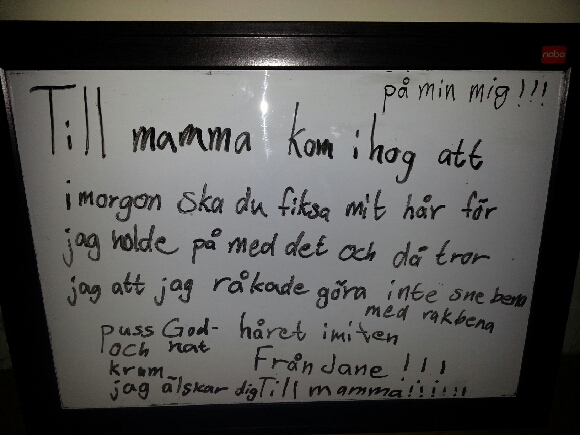 nobo
på min mig!!!
Till mamma kom ihog att
imorgon ska du fiksa mit hår för
jag holde på med det och då tror
jag att jag råkade göra inte sne bena
med rakbena
puss God- håret imiten
och nat
kram Från Jane!!!
jag älskar dig Till mamma!!!!!!